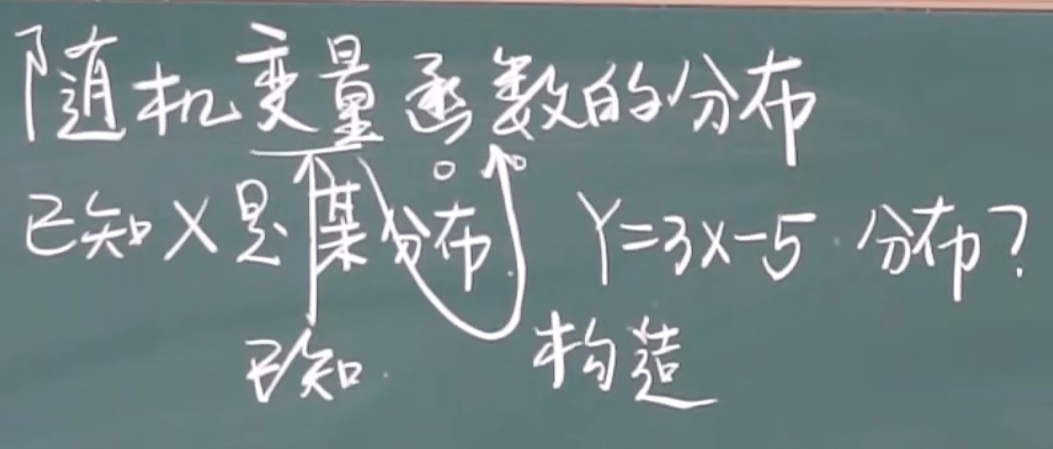 随机变量函数的分布
已知X是某分布 Y=3X-5 分布?
已知 构造